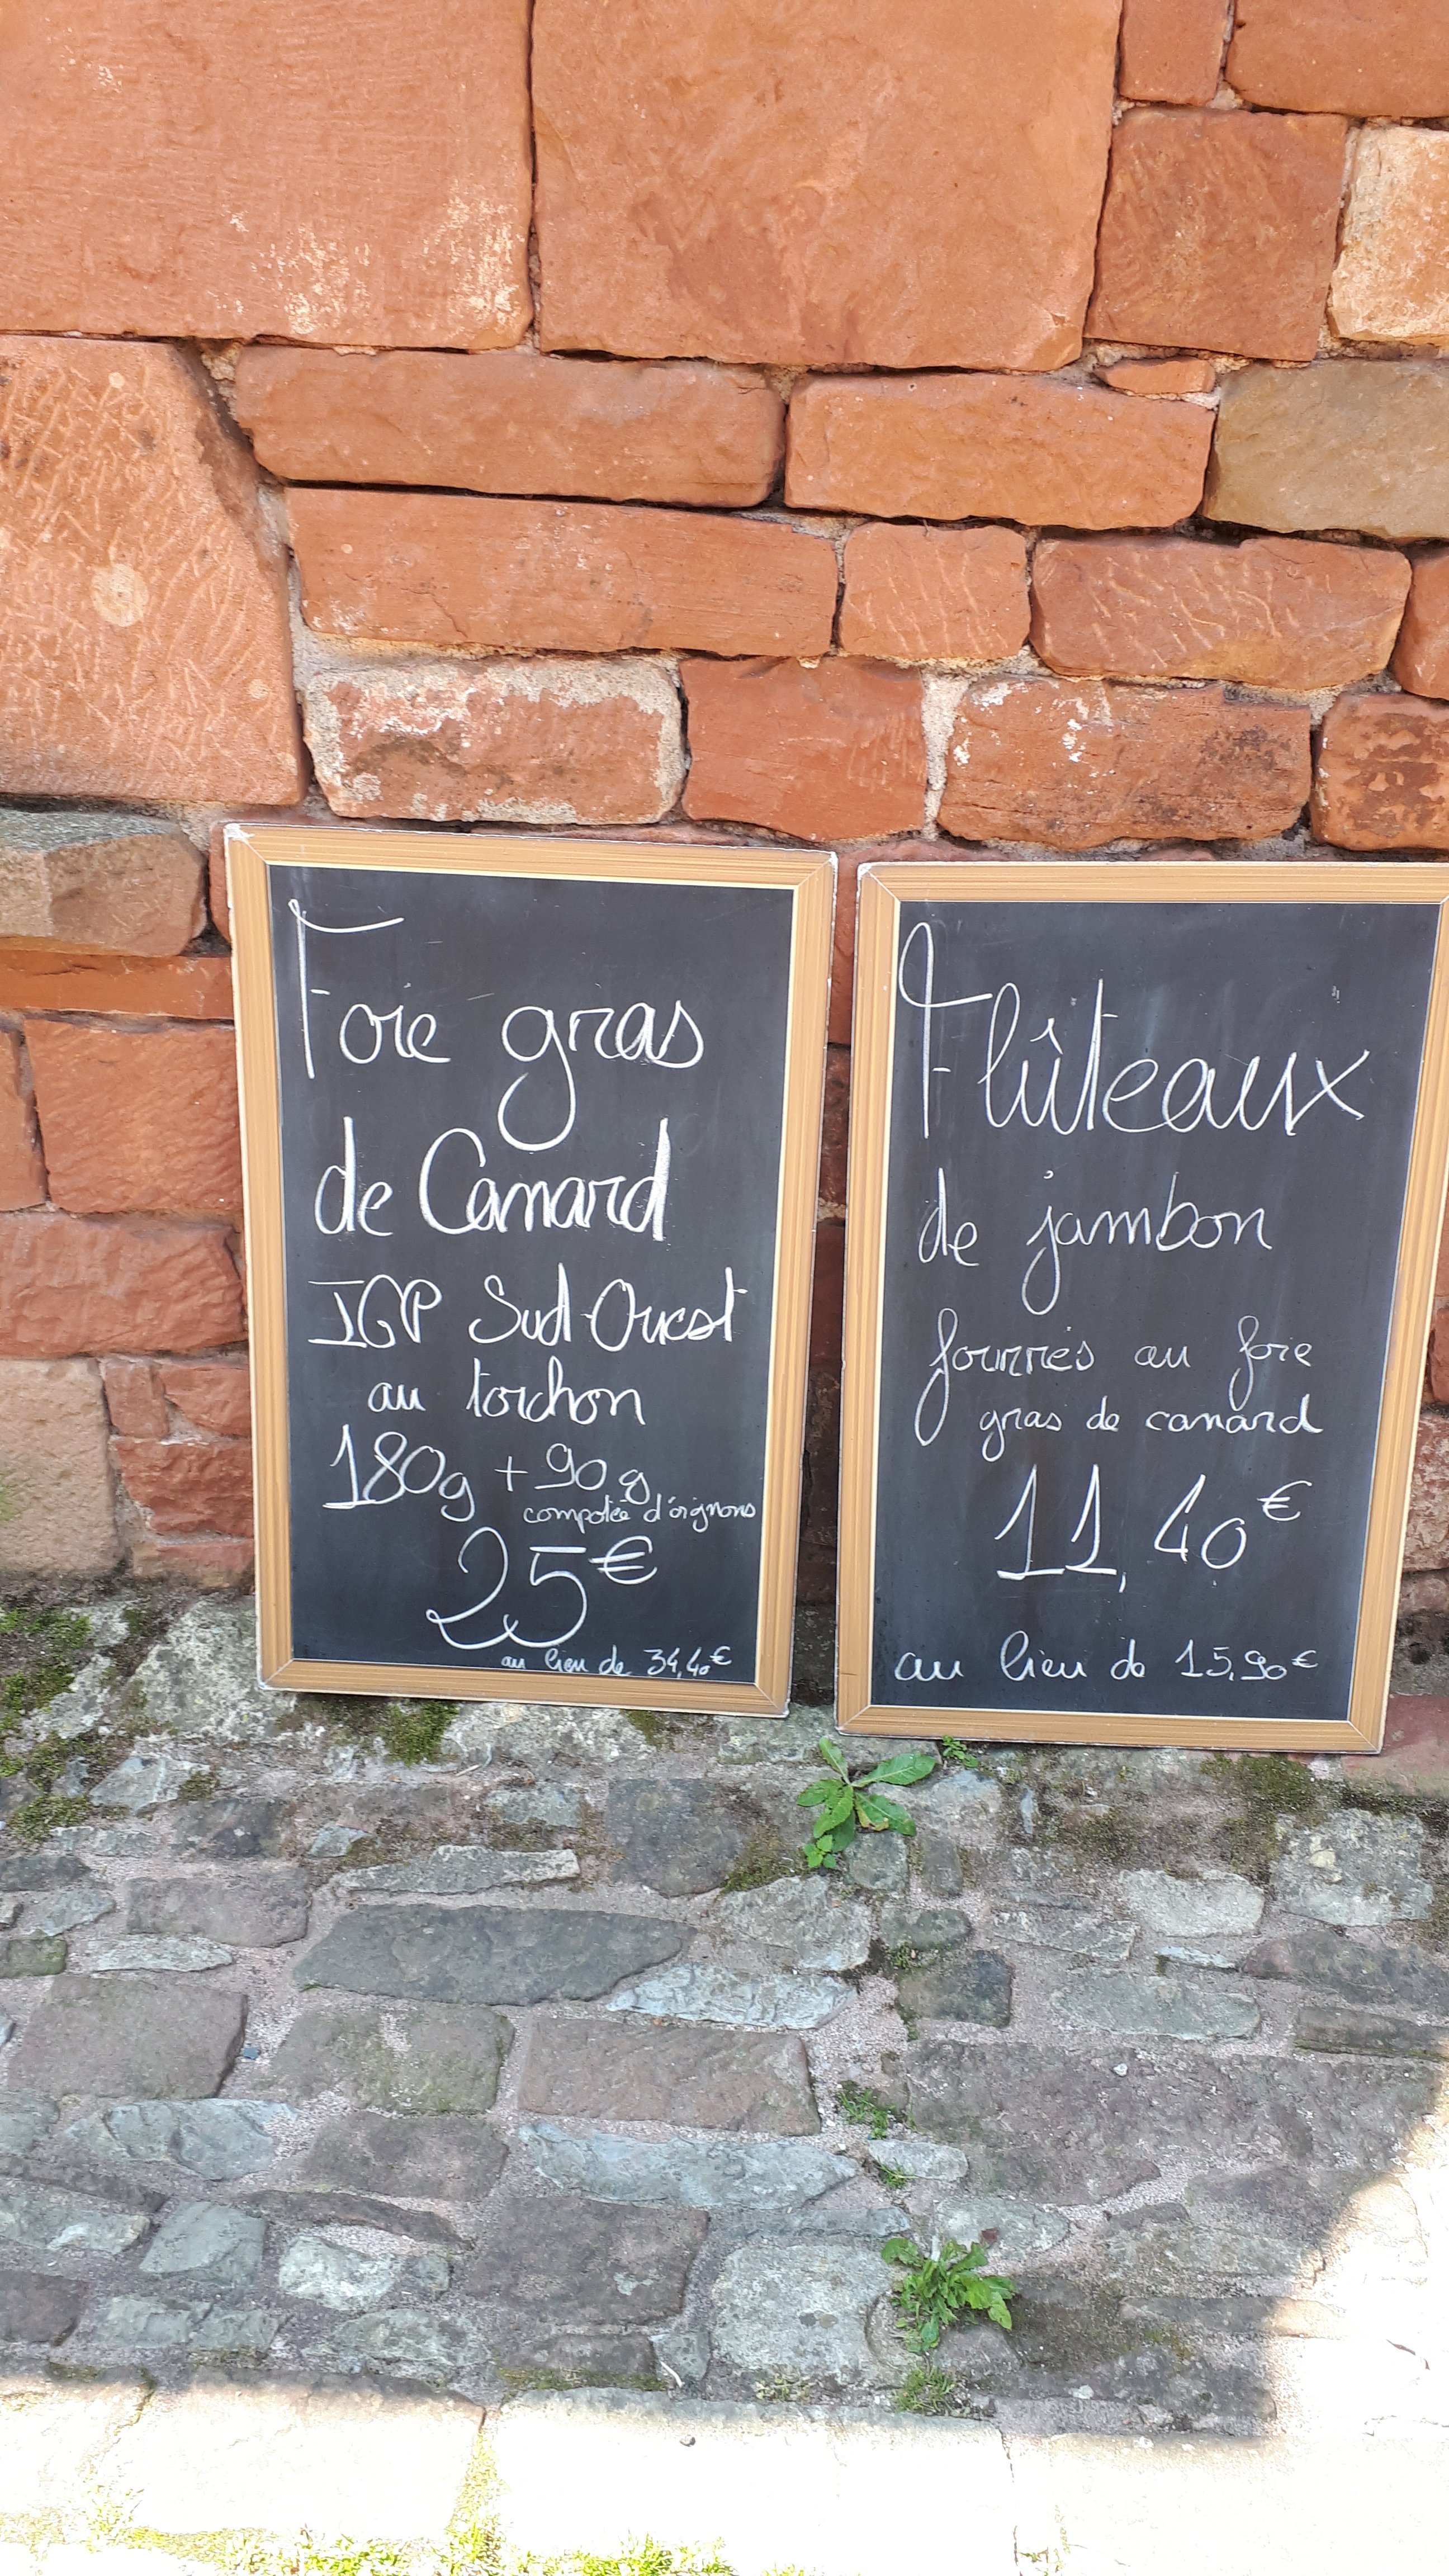 Foie gras
de Canard
IGP Sud-Ouest
au torchon
180g + 90g
compotée d'oignons
25€
au lieu de 34,40€
Flûteaux
de jambon
fourrés au foie
gras de canard
11,40€
au lieu de 15,90€